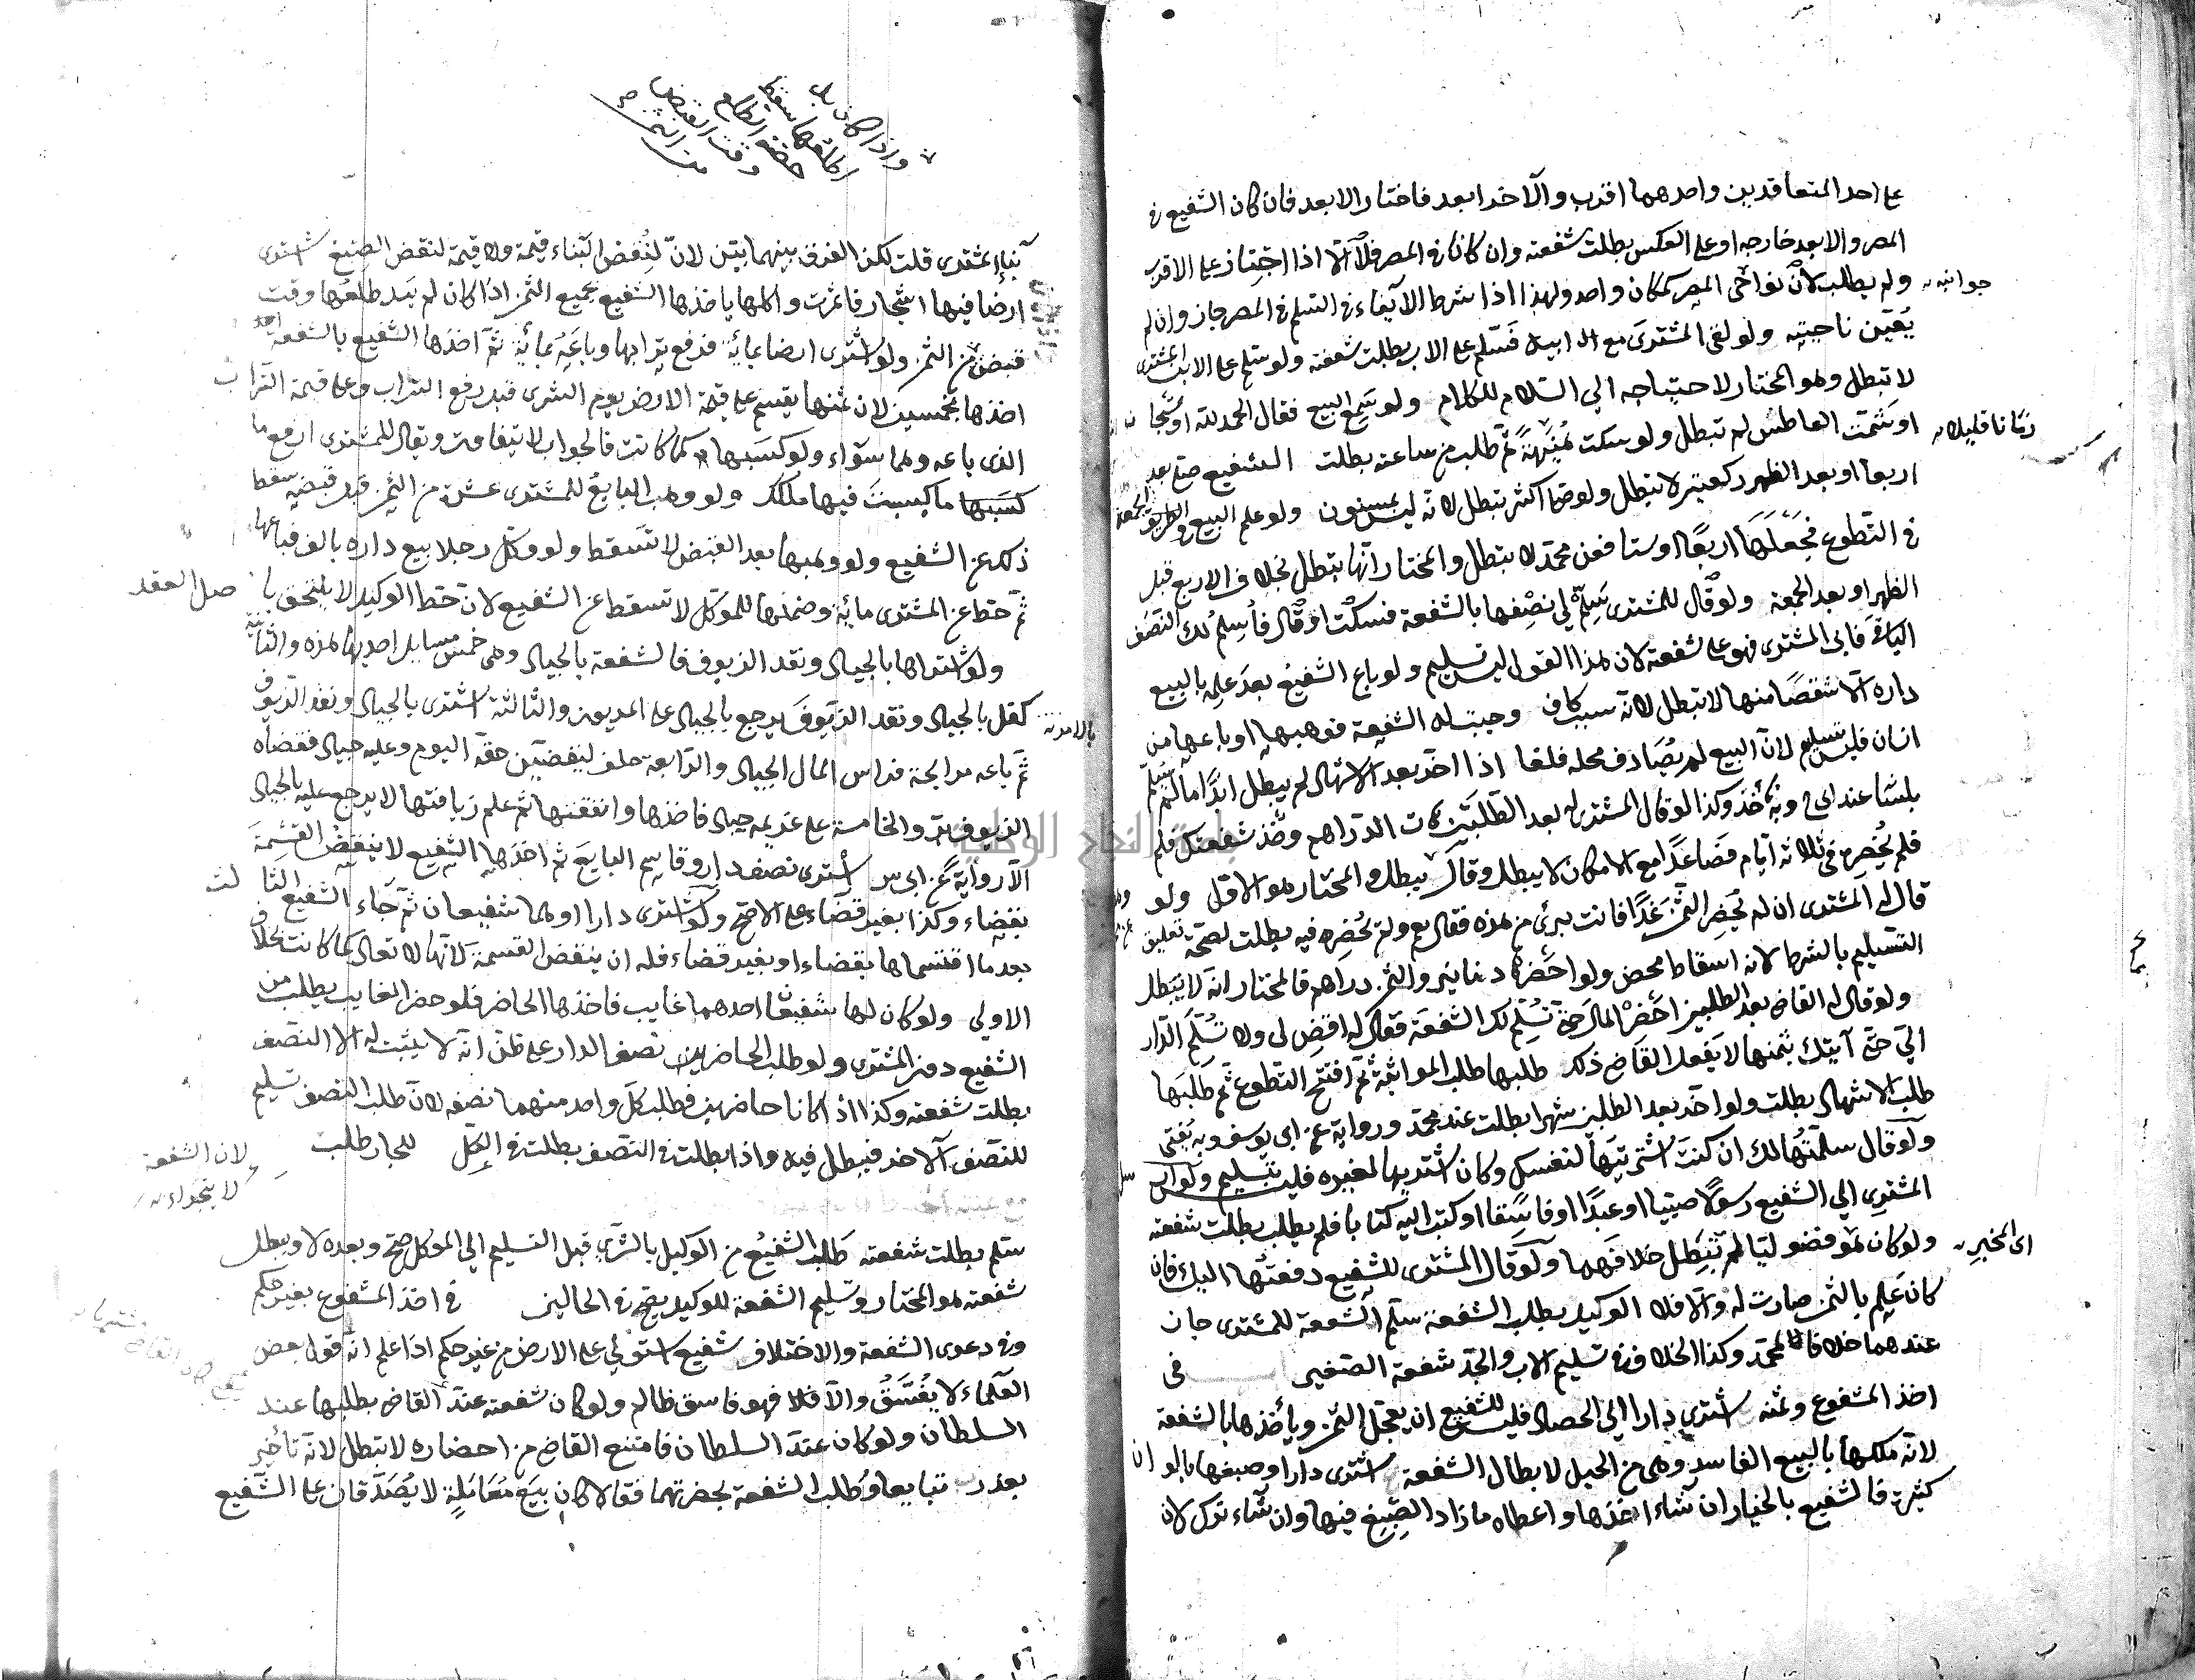 على احد المتعاقدين واحدهما اقرب والآخر ابعد فاختار الابعد فان كان الشفيع في
المصر والابعد خارجه او على العكس بطلت شفعته وان كانا في المصر فلا الّا اذا اجتاز على الاقرب
ولم يطلب لانّ نواحي المصر كمكان واحد ولهذا اذا شرط الايفاء في السلم في المصر جاز وان لم
جوانبه
يعيّن ناحيته ولو لقي المشتري مع ابيه فسلّم على الاب بطلت شفعته ولو سلم على الابن المشتري
لا تبطل وهو المختار لاحتياجه الي السّلام للكلام ولو سمع البيع فقال الحمد لله او سبحان
او شمّت العاطس لم تبطل ولو سكت هنيهةً ثمّ طلب من ساعته بطلت الشفيع صلى بعد الجمعة
زمانا قليلا
اربعا او بعد الظهر ركعتين لا تبطل ولو صلى اكثر تبطل لانّه ليس بمسنون ولو علم البيع وهو
في التطوع فجعلها اربعًا او ستا فعن محمّد لا تبطل والمختار انّها تبطل بخلاف الاربع قبل
الظهر او بعد الجمعة ولو قال للمشتري سلّم لي نصفها بالشفعة فسكت او قال فأسلم لك النصف
الباقي فابى المشتري فهو على شفعته لان هذا القول ليس بتسليم ولو باع الشفيع بعد علمه بالبيع
داره الّا شقصًا منها لا تبطل لانّه سبب كاف وجبت له الشفعة فوهبها او باعها من
انسان فليس بتسليم لانّ البيع لم يصادف محله فلغا اذا اخّر بعد الاشهاد لم يبطل ابدًا ما لم يسلّم
بلسانه عند ابي ح وبه نأخذ وكذا لو قال المشتري له بعد الطلبين هات الدّراهم وخذ شفعتك فلم
فلم يحضره في ثلاثة ايّام فصاعدًا مع الامكان لا يبطل وقال يبطل والمختار هو الاول ولو
قال له المشتري ان لم تحضر الثمن غدًا فانت بريء من هذه فقال نعم ولم يحضره فيه بطلت لصحة تعليق
التسليم بالشرط لانه اسقاط محض ولو احضره دنانير والثمن دراهم فالمختار انّه لا تبطل
ولو قال له القاضي بعد الطلبين احضر المال حتى تسلّم لك الشفعة فقال له اقض لي ولا تسلّم الدّار
اليّ حتى آتيك بثمنها لا يفعل القاضي ذلك طلبها طلب المواثبة ثمّ افتتح التطوع ثم طلبها
طلب الاشهاد بطلت ولو اخّر بعد الطلبين شهرا بطلت عند محمّد ورواية عن ابي يوسف وبه يفتى
ولو قال سلّمتها لك ان كنت اشتريتها لنفسك وكان اشتريها لغيره فليس بتسليم ولو ارسل
المشتري الي الشفيع رسولًا صبيّا او عبدًا او فاسقا او كتب اليه كتابا فلم يطلب بطلت شفعته
ولو كان هو فضوليّا لم تبطل خلافهما ولو قال المشتري للشفيع دفعتها اليك فان
اى المخبر
كان علم بالثمن صارت له والّا فلا الوكيل بطلب الشفعة سلّم الشفعة للمشتري جاز
عندهما خلافا لمحمّد وكذا الخلاف في تسليم الاب والجدّ شفعة الصّغير في
اخذ المشفوع وثمنه اشتري دارا الي الحصاد فليس للشفيع ان يعجّل الثمن ويأخذها بالشفعة
لانّه ملكها بالبيع الفاسد وهي من الحيل لابطال الشفعة اشترى دارا وصبغها بالوان
كثيرة فالشفيع بالخيار ان شاء اخذها واعطاه ما زاد الصّبغ فيها وان شاء ترك لان
بناء المشتري قلت لكن الفرق بينهما بيّن لانّ لنقض البناء قيمة ولا قيمة لنقض الصبغ اشترى
ارضا فيها اشجار فاثمرت واكلها ياخذها الشفيع بجميع الثمن اذا كان لم يبد طلعها وقت
قبض من الثمن ولو اشترى ارضا بمائة فرفع ترابها وباعه بمائة ثمّ اخذها الشفيع بالشفعة
اخذها بخمسين لان ثمنها يقسم على قيمة الارض يوم الشرى قبل رفع التراب وعلى قيمة التراب
الذى باعه وهما سواء ولو كبسها كما كانت فالجواب لا يتفاوت ويقال للمشترى ارفع ما
كبستَ فيها ملكك ولو وهب البايع للمشترى عشرة من الثمن قبل قبضه سقط
ذلك عن الشفيع ولو وهبها بعد القبض لا تسقط ولو وكّل رجلا ببيع داره بالف فباعها
ثمّ حطّ عن المشترى مائة وضمنها للموكّل لا تسقط عن الشفيع لان حطّ الوكيل لا يلتحق باصل العقد
ولو اشتراها بالجياد ونقد الزيوف فالشفعة بالجياد وهي خمس مسايل احديها هذه والثانية
كفل بالجياد ونقد الزيوف يرجع بالجياد على المديون والثالثة اشترى بالجياد ونقد الزيوف
ثمّ باعه مرابحة فراس المال الجياد والرّابعة حلف ليقضين حقّه اليوم وعليه جياد فقضاه
الزيوف برّ والخامسة على غريمه جياد فاخذها وانفقها ثم علم زيافتها لا يرجع عليه بالجياد
الّا رواية عن ابي س اشترى نصف دار وقاسم البايع ثم اخذها الشفيع لا ينقض القسمة
بقضاء وكذا بغير قضاء على الاصح ولو اشترى دارا وهما شفيعان ثم جاء الشفيع الثالث
بعد ما اقتسماها بقضاء او بغير قضاء فله ان ينقض القسمة
الاولي ولو كان لها شفيعان احدهما غايب فاخذها الحاضر فلو حضر الغايب يطلب من
الشفيع دون المشترى ولو طلب الحاضر نصف الدار على ظنّ انّه لا يثبت له الا النصف
بطلت شفعته وكذا اذا كانا حاضرين فطلب كلّ واحد منهما نصفه لانّ طلب النصف تسليم
للنصف الآخر فيبطل فيه واذا بطلت في النصف بطلت في الكل للجار طلب
لان الشفعة
لا يتجزاء
سلم بطلت شفعته طلب الشفيع من الوكيل بالشرى قبل التسليم الي الموكل صح وبعده لا ويبطل
شفعته هو المختار وتسليم الشفعة للوكيل يصح في الحالين في اخذ المشفوع بغير حكم
وفي دعوى الشفعة والاختلاف شفيع استولي على الارض من غير حكم اذا علم انّه قول بعض
العلماء لا يفسّق والّا فلا فهو فاسق ظالم ولو كان شفعته عند القاضي يطلبها عند
السلطان ولو كان عند السلطان فامتنع القاضي من احضاره لا تبطل لانّه تأخير
بعذر تبايعا وطلب الشفعة بحضرتهما فقالا كان بيع معاملة لا يصدّقان على الشفيع